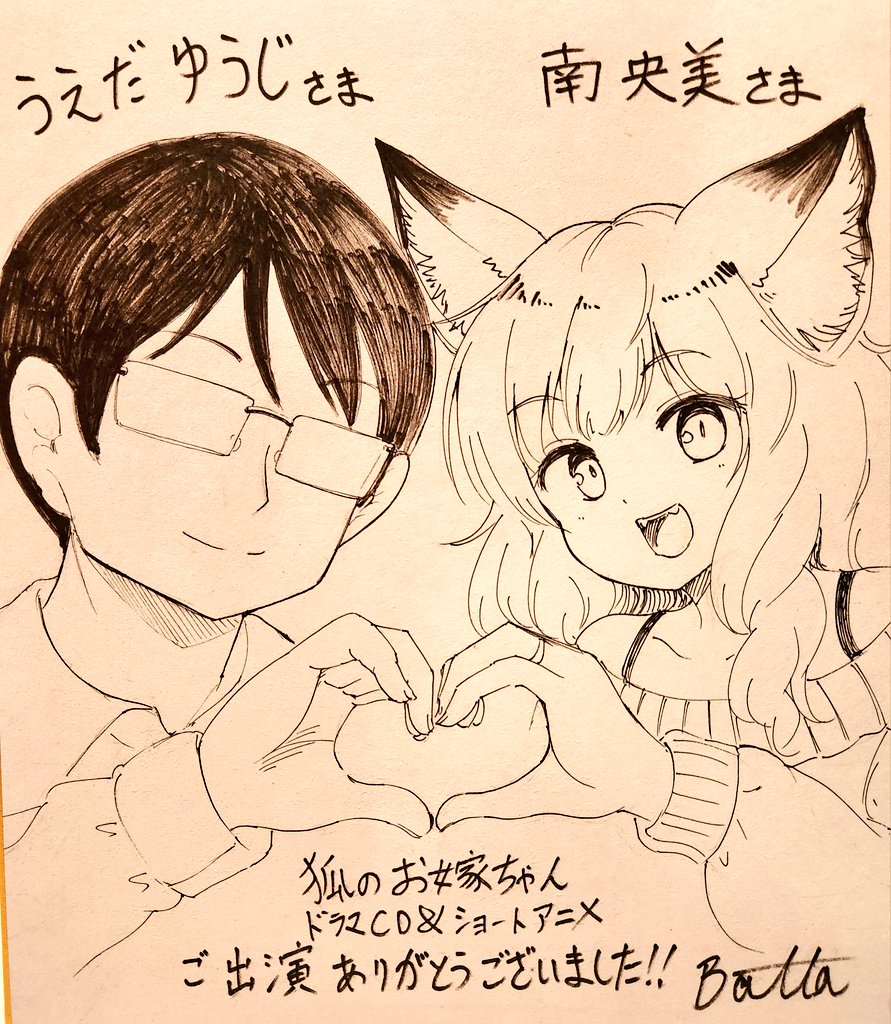 うえだ ゆうじさま
南 央美さま
狐のお嫁ちゃん
ドラマCD&ショートアニメ
ご出演ありがとうございました!!
Batta